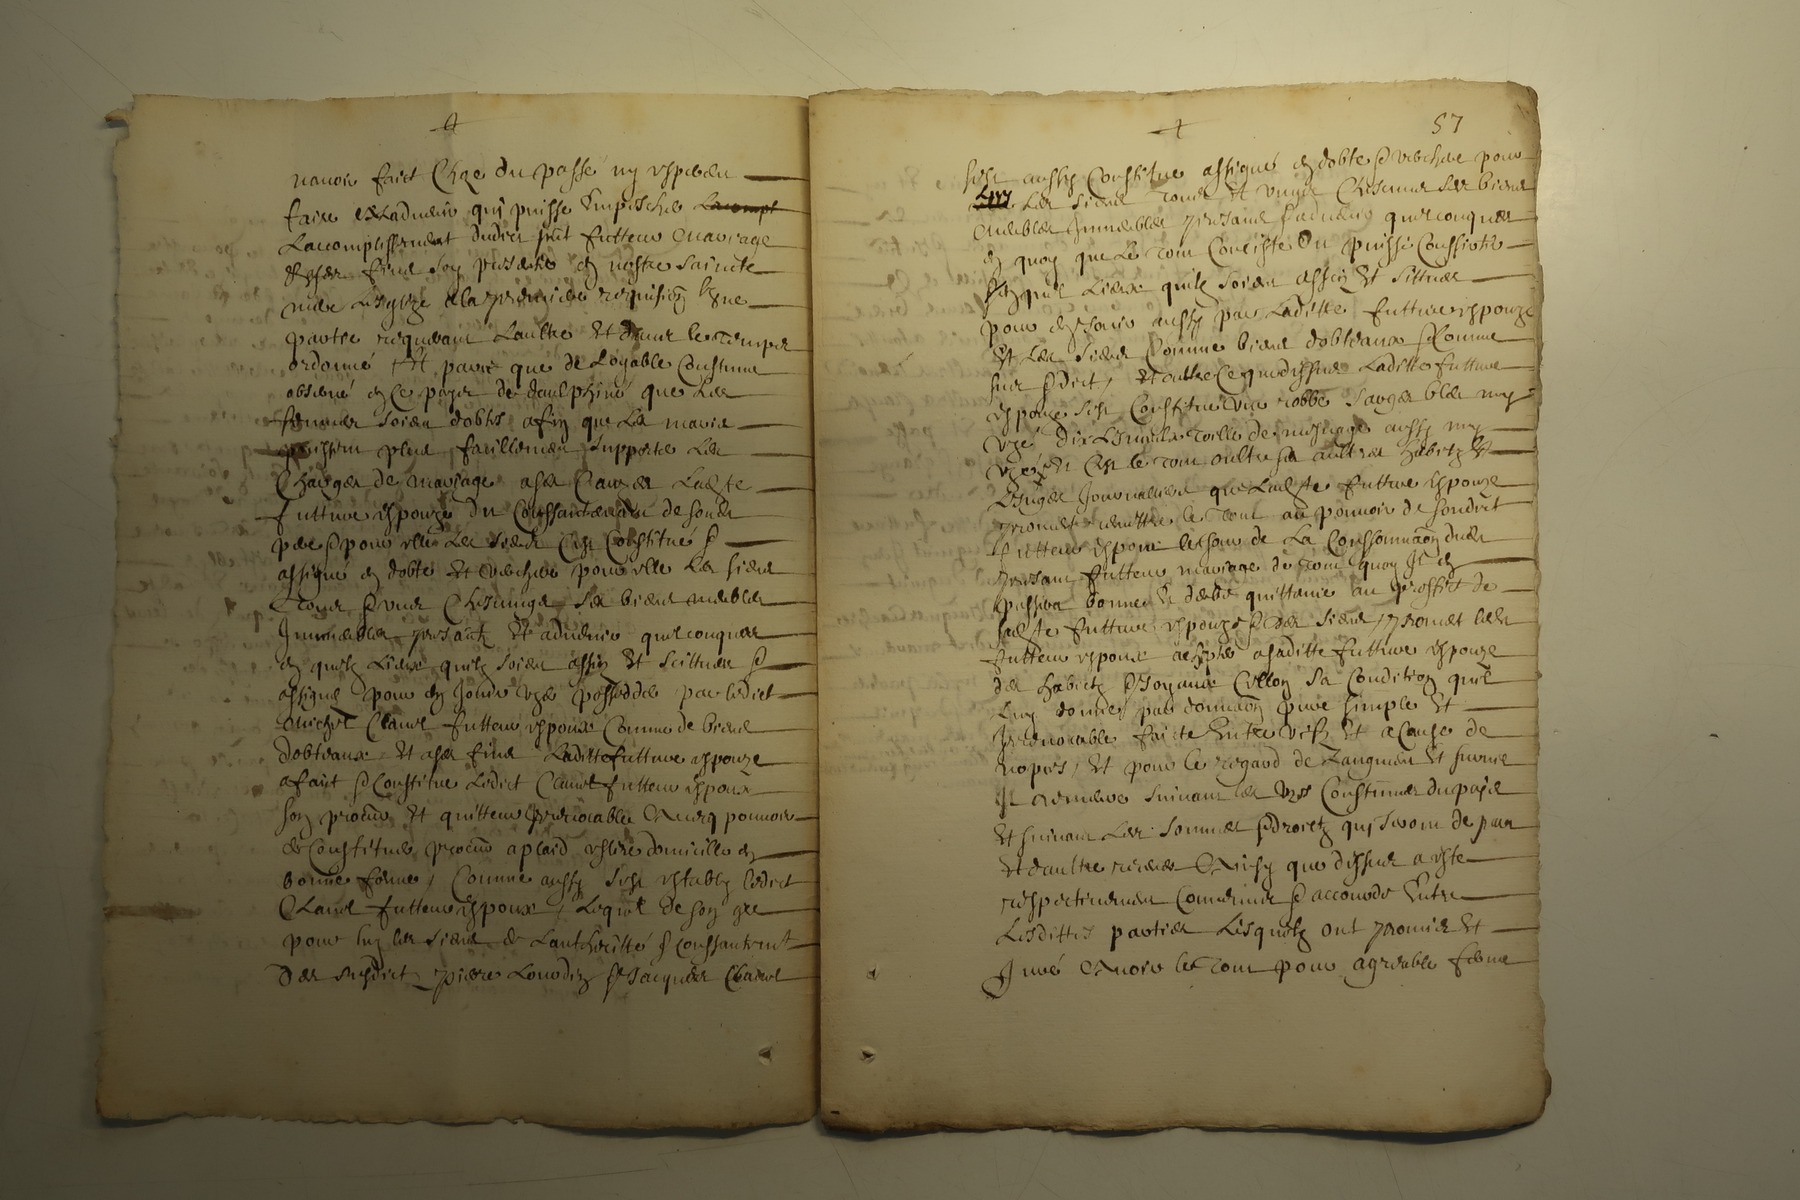 navoir faict choze du passé ny espere
faire a ladvenir qui puisse empescher
Laccomplissement dudict pnt futteur mariage
fins soy presenter en nostre saincte
mere Lesglize a la premiere requision lune
partie requerant Laultre et dans le temps
ordonné Et parce que de Loyable Coustume
observé en ce pays de daulphiné que les
femmes soient dobtés afin que les maris
puissent plus facillement supporter les
Charges de mariage a ses Causes Ladte
futture espouze du Conssantement de sondt
pere & pour elle les siens sest Constitué &
assigné en dobte et verchere pour elle les siens
Tous & uns Chescungs ses biens meubles
Immeubles presants et advenir quelconques
en quelz Lieux quilz soient assis et scittués &
assigne pour en Jouir uzer posseder par ledict
Michel Claret futteur espoux Comme de biens
dobteaux et a ses fins Laditte futture espouze
a fait & Constitue Ledict Claret futteur espoux
son procur et quitteur Irrevocable Avecq pouvoir
de Constituer procur a plaid eslire domicille en
bonne forme / Comme aussy sest estably ledict
Claret futteur espoux / Lequel de son gre
pour luy les siens de Lautheritté & conssantemt
des susdict piere Lourdin & Jacques Claret
57
sest aussy Constitue assigné en dobte & verchere pour
Luy Les siens tous et ungs Chescuns ses biens
meubles Immeubles presants & advenir quelconques
en quoy que Le tout Consiste Ou puisse Conssister
quel Lieux quilz soient assis et sittués
pour en Jouir aussy par Laditte futture espouze
et Les siens Comme biens dobteaux & Comme
sus & dict / et oultre Ce que dessus Laditte futture
espouze sest Constitue une robbe sarge bleu my
uzé dix Linceulx toille de mesnage aussy my
uzés et Cest le tout oultre ses aultres habitz et
Linges Journaliers que Ladte futture espouze
promest remettre le tout au pouvoir de sondict
futteur espoux lhors de La Conssommaon dudt
presant futteur mariage de tout quoy Il en
passera bonne et deube quittance au proffit de
ladte futture espouze & des siens / promet ledt
futteur espoux a laditte futture espouze
des habitz & Joyaux cellon sa Condition quil
Luy donne / par donnaon pure simple et
Irrevocable faicte Entre vifz et a Cause de
nopces / Et pour le regard de Laugment et survie
Il demeure suivant les us Coustumes du pays
et suivant Les sommes & droictz quy seront de part
et daultre Ainsy que dessus a esté
respectivement Convenue & accordé Entre
Lesdittes parties Lesquelz ont promis et
Juré Avoir le tout pour agreable ferme